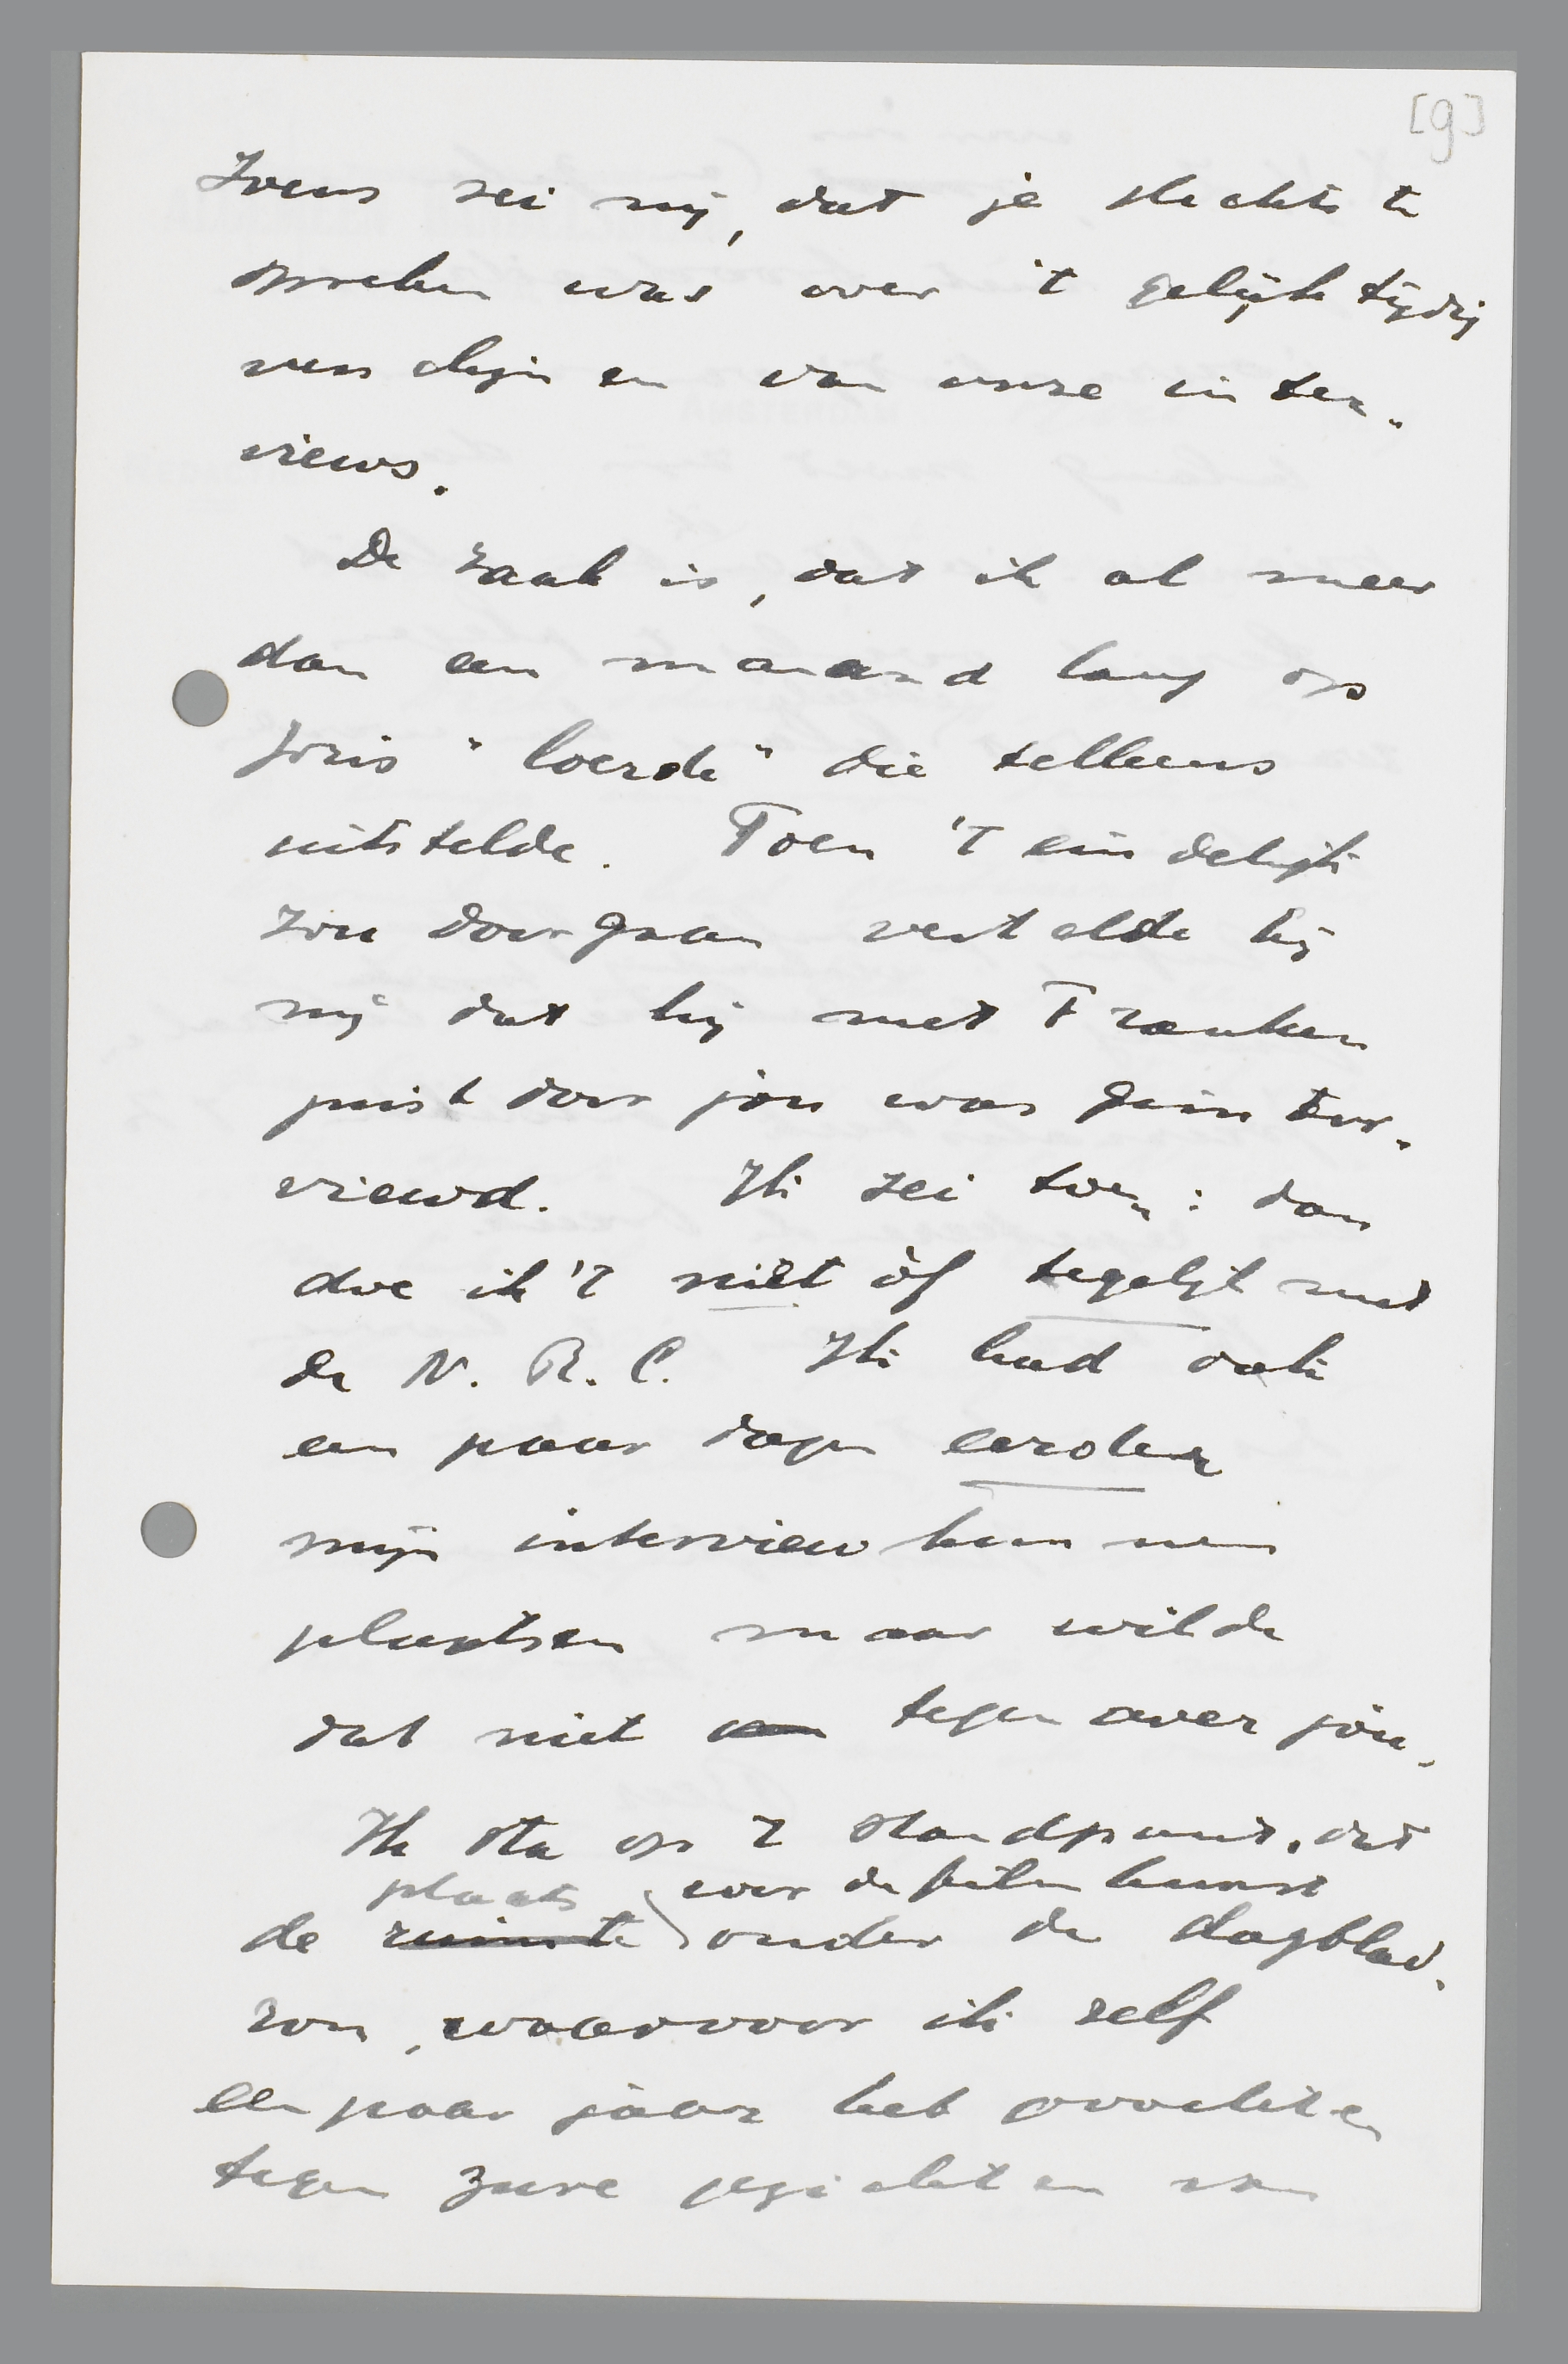 [g]
Ivens zei mij, dat je slecht te
spreken was over 't gelijktijdig
verschijnen van onze inter-
views.
De zaak is, dat ik al meer
dan een maand lang op
Joris "loerde" die telkens
uitstelde. Toen 't eindelijk
zou doorgaan vertelde hij
mij dat hij met Franken
juist door jou was geinter-
viewd. Ik zei toen: dan
doe ik 't niet òf tegelijk met
de N.R.C. Ik had ook
een paar dagen eerder
mijn interview kunnen
plaatsen maar wilde
dat niet tegenover jou.
Ik sta op 't standpunt, dat
plaats voor de filmkunst
de ruimte onder de dagblad-
zon, waarvoor ik zelf
een paar jaar heb gevochten
tegen zure gezichten van